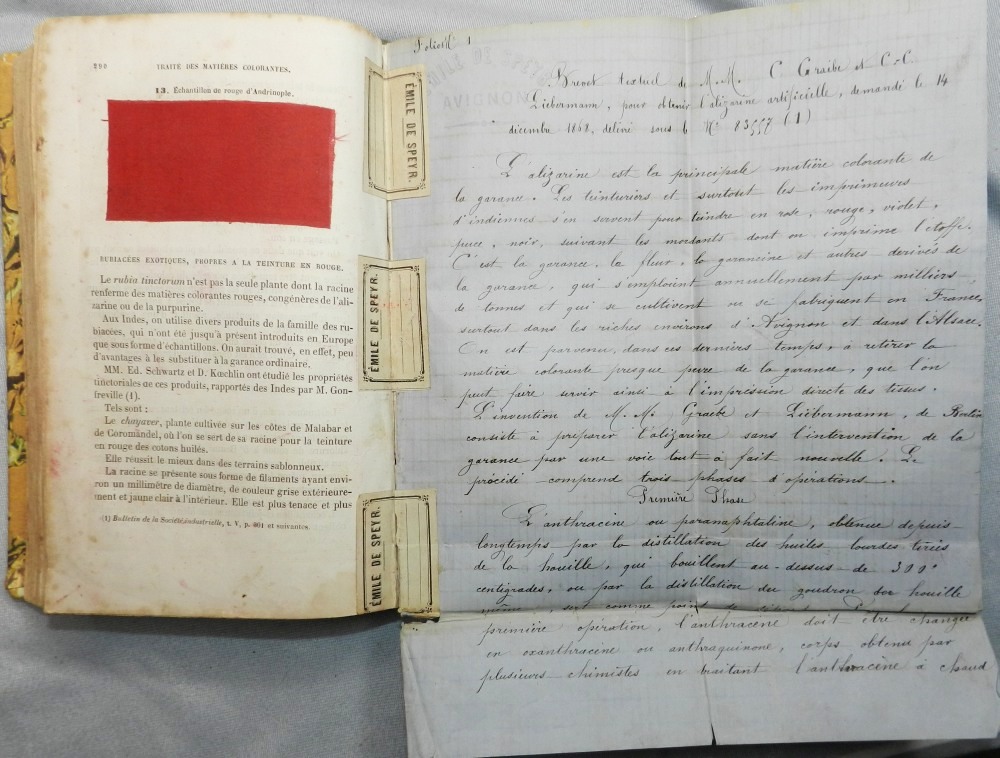 290 TRAITÉ DES MATIÈRES COLORANTES.
13. Échantillon de rouge d'Andrinople.
RUBIACÉES EXOTIQUES, PROPRES A LA TEINTURE EN ROUGE.
Le rubia tinctorum n'est pas la seule plante dont la racine
renferme des matières colorantes rouges, congénères de l'ali-
zarine ou de la purpurine.
Aux Indes, on utilise divers produits de la famille des ru-
biacées, qui n'ont été jusqu'à présent introduits en Europe
que sous forme d'échantillons. On aurait trouvé, en effet, peu
d'avantages à les substituer à la garance ordinaire.
MM. Ed. Schwartz et D. Kœchlin ont étudié les propriétés
tinctoriales de ces produits, rapportés des Indes par M. Gon-
freville (1).
Tels sont :
Le chayaver, plante cultivée sur les côtes de Malabar et
de Coromandel, où l'on se sert de sa racine pour la teinture
en rouge des cotons huilés.
Elle réussit le mieux dans des terrains sablonneux.
La racine se présente sous forme de filaments ayant envi-
ron un millimètre de diamètre, de couleur grise extérieure-
ment et jaune clair à l'intérieur. Elle est plus tenace et plus
(1) Bulletin de la Société industrielle, t. V, p. 301 et suivantes.
ÉMILE DE SPEYR.
ÉMILE DE SPEYR.
ÉMILE DE SPEYR.
ÉMILE DE SPEYR
Folio N° 1
Brevet textuel de M.M. C. Graibe et C.C.
Liebermann, pour obtenir l'alizarine artificielle, demandé le 14
décembre 1868, délivré sous le N° (1)
L'alizarine est la principale matière colorante de
la garance. Les teinturiers et surtout les imprimeurs
d'indiennes s'en servent pour teindre en rose, rouge, violet,
puce, noir, suivant les mordants dont on imprime l'étoffe.
C'est la garance, la fleur, la garancine et autres dérivés de
la garance, qui s'emploient annuellement par milliers
de tonnes et qui se cultivent ou se fabriquent en France,
surtout dans les riches environs d'Avignon et dans l'Alsace.
On est parvenu, dans ces derniers temps, à retirer la
matière colorante presque pure de la garance, que l'on
peut faire servir ainsi à l'impression directe des tissus.
L'invention de M.M. Graibe et Liebermann, de Berlin
consiste à préparer l'alizarine sans l'intervention de la
garance par une voie tout à fait nouvelle. Le
procédé comprend trois phases d'opérations.
Première Phase
L'anthracine ou paranaphtaline, obtenue depuis
longtemps par la distillation des huiles lourdes tirées
de la houille, qui bouillent au-dessus de 300°
centigrades, ou par la distillation du goudron de houille
même, sert comme point de
première opération, l'anthracène doit être changée
en oxanthracène ou anthraquinone, corps obtenu par
plusieurs chimistes en traitant l'anthracine à chaud